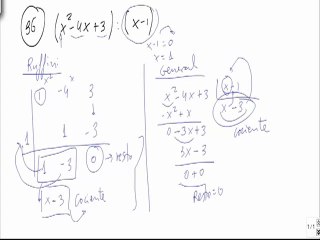 96 (x²-4x+3) : (x-1)
x-1=0
x=1
Ruffini
x² x
1 -4 3
1 1 -3
1 -3 0 → resto
x-3 Cociente
General
x²-4x+3 x-1
-x²+x x-3
0-3x+3 cociente
3x-3
0+0
Resto=0
1/1